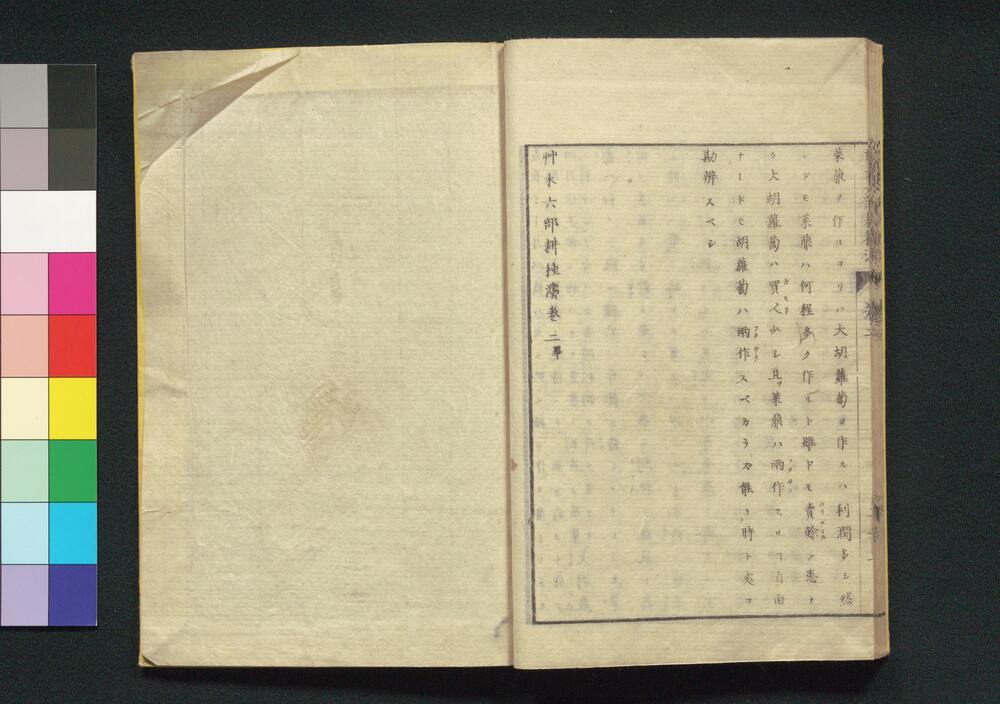 菜菔ヲ作ルヨリハ大胡蘿蔔ヲ作ルハ利潤多シ然
レドモ菜菔ハ何程多ク作ルト雖ドモ賣餘ノ患ナ
ク大胡蘿蔔ハ買人少シ且ツ菜菔ハ両作スルヿ自由
ナードモ胡蘿蔔ハ両作スベカラズ能ク時ト處ヲ
勘辨スベシ
艸木六部耕種法巻二畢